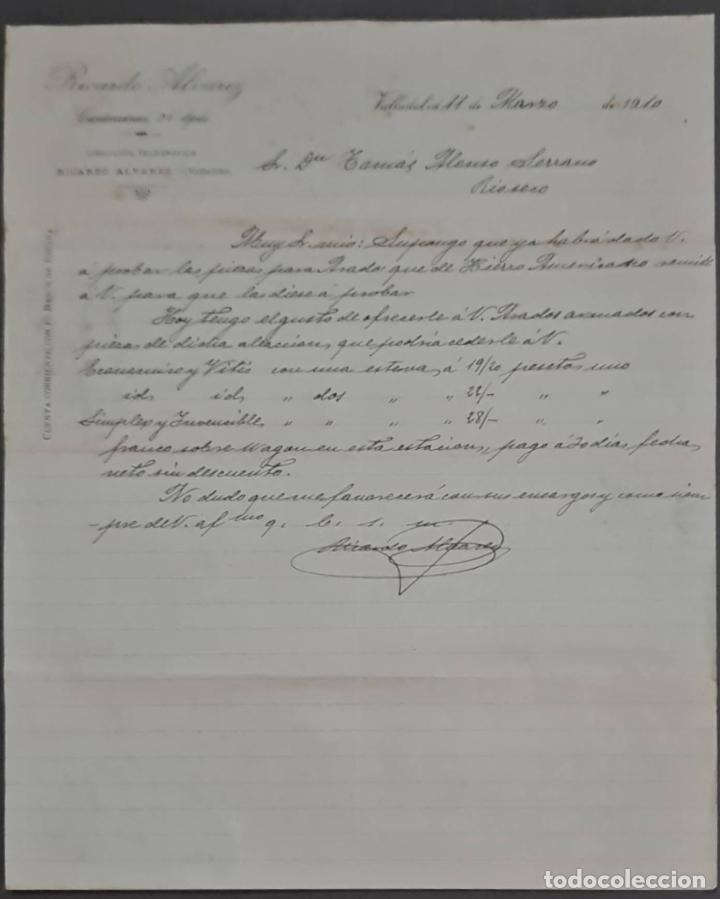 Ricardo Alvarez
Valladolid 11 de Marzo de 1910
DIRECCIÓN TELEGRÁFICA
RICARDO ALVAREZ
Sr. Dn Tomás Alonso Serrano
Rioseco
CUENTA CORRIENTE CON EL BANCO DE ESPAÑA
Muy Sr. mio: Supongo que ya habrá dado V.
a probar las piezas para Arados que de Hierro Americano remití
a V. para que las diese á probar
Hoy tengo el gusto de ofrecerle á V. Arados armados con
piezas de dicha aleacion, que podria cederle á V.
Economico y Vitis con una esteva, á 19/20 pesetas uno
id, id, " dos " " 22/- " "
Simplex y Invencible, " " " " 28/- " "
franco sobre Wagon en esta estacion, pago á 30 dias fecha,
neto sin descuento.
No dudo que me favorecerá con sus encargos y como siem
-pre de V. afmo q. b. s. m.
Ricardo Alvarez
todocoleccion.net